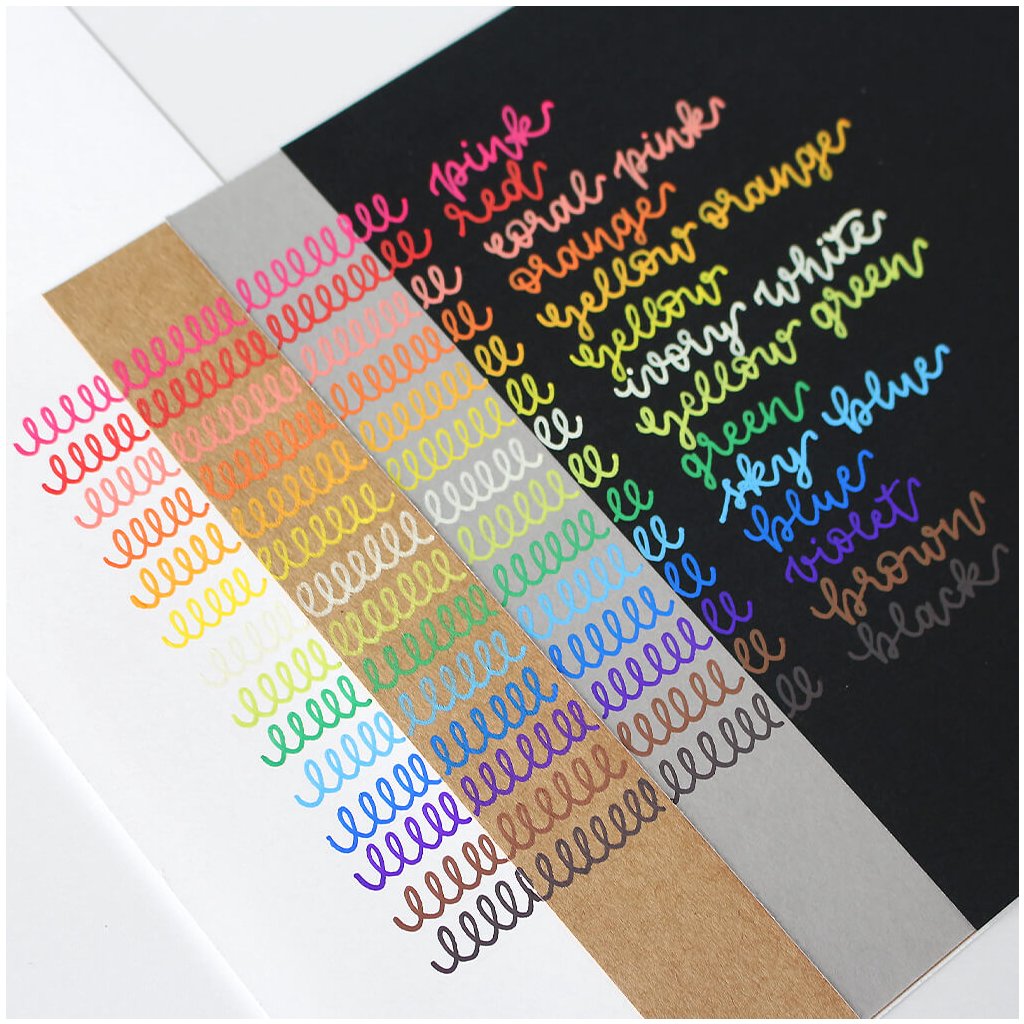 pink
red
coral pink
orange
yellow orange
yellow
ivory white
yellow green
green
sky blue
blue
violet
brown
black